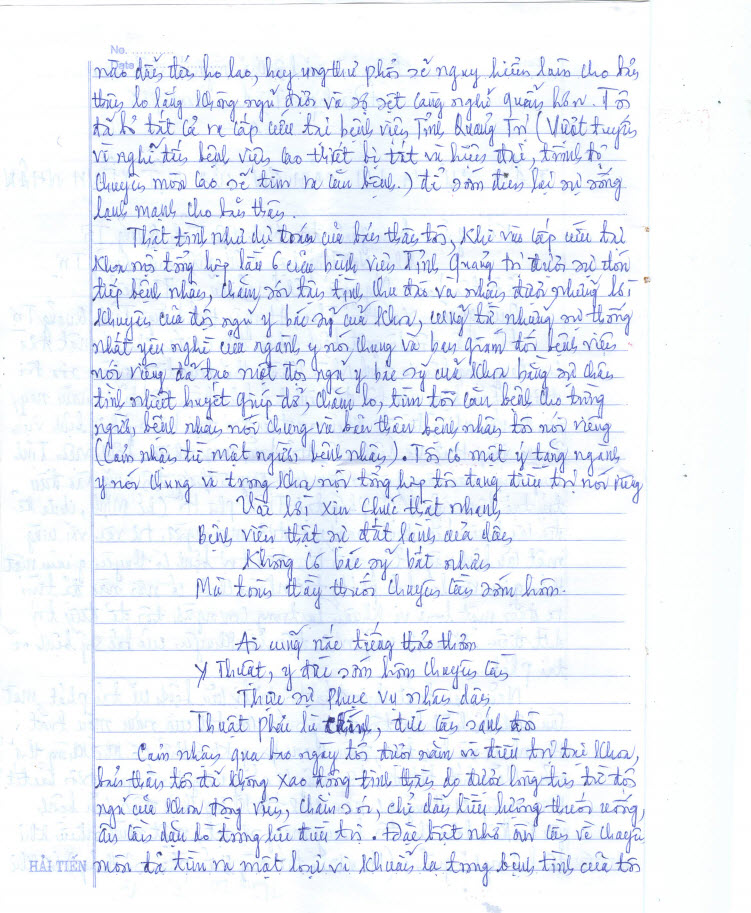 No. ............
Date
nào dẫn đến ho lao, hay ung thư phổi sẽ nguy hiểm lắm cho bản
thân lo lắng không ngủ được và sợ sệt càng nghĩ quẩn hơn. Tôi
đã bỏ tất cả ra cấp cứu tại bệnh viện Tỉnh Quảng Trị (Vượt tuyến
vì nghĩ đến bệnh viện cao thiết bị tốt và hiện đại, trình độ
chuyên môn cao sẽ tìm ra căn bệnh.) để sớm đem lại sự sống
lành mạnh cho bản thân.
Thật tình như dự toán của bản thân tôi, khi vào cấp cứu tại
khoa nội tổng hợp lầu 6 của bệnh viện Tỉnh Quảng Trị được sự đón
tiếp bệnh nhân, chăm sóc tận tình chu đáo và nhận được những lời
khuyên của đội ngũ y bác sỹ của khoa, cũng từ những sự thống
nhất yêu nghề của ngành y nói chung và ban giám đốc bệnh viện
nói riêng đã tạo một đội ngũ y bác sỹ của khoa bằng sự chân
tình nhiệt huyết giúp đỡ, chăm lo, tìm tòi căn bệnh cho từng
người bệnh nhân nói chung và bản thân bệnh nhân tôi nói riêng
(Cảm nhận từ một người bệnh nhân). Tôi có một ý tặng ngành
y nói chung và trong khoa nội tổng hợp tôi đang điều trị nói riêng
Vài lời xin chúc thật nhanh
Bệnh viện thật sự đất lành của dân
Không có bác sỹ bất nhân
Mà toàn thầy thuốc chuyên cần sớm hôm.
Ai cũng nấc tiếng thảo thơm
Y thuật, y đức sớm hôm chuyên cần
Thực sự phục vụ nhân dân
Thuật phải là chính, đức cần sánh đôi
Cảm nhận qua bao ngày tôi được nằm và điều trị tại khoa,
bản thân tôi đã không xao động tinh thần do được lòng tin từ đội
ngũ của khoa động viên, chăm sóc, chỉ dẫn liều lượng thuốc uống,
ân cần dặn dò trong lúc điều trị. Đặc biệt nhờ ân cần về chuyên
HẢI TIẾN môn đã tìm ra một loại vi khuẩn lạ trong bệnh tình của tôi